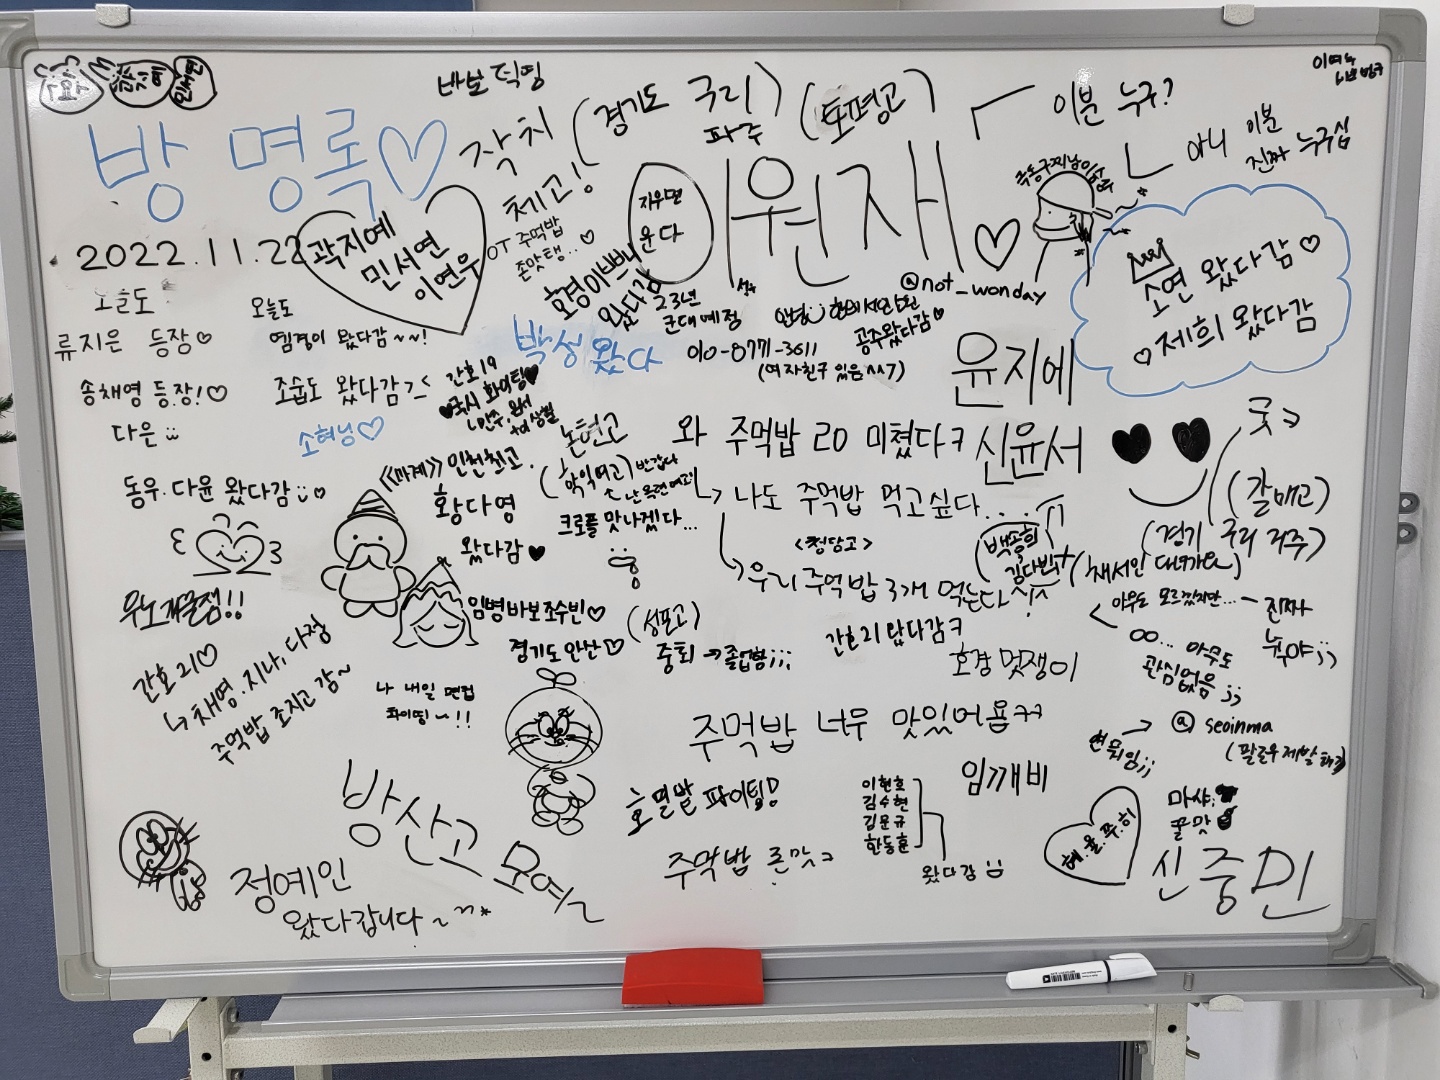 바보 떡띵
방명록♡
작치
체고!
(경기도 구리)
파주
(토평고)
이분 누구?
아니 이분
진짜 누구심
2022.11.22
곽지예
민서연
이연우
OT 주먹밥
존맛탱...♡
지우면
운다
이원재♡
@not_wonday
호경이쁘니
왔다감
소연 왔다감♡
♡제희 왔다감
오늘도
류지은 등장♡
오늘도
옘경이 왔다감~~!
박성 왔다
23년
군대예정
010-8771-3611
(여자친구 있음^^7)
공주왔다감♡
윤지에
송채영 등장!♡
조습도 왔다감
간호19
♥국시 화이팅♥
다은
소혀닝♡
논현고
와 주먹밥 20 미쳤다ㅋ
신윤서
동우.다윤 왔다감
《마계》인천최고.
황다영
왔다감♥
(학익여고)
반갑다
난 옥련여고
크로플 맛나겠다...
나도 주먹밥 먹고싶다...
<청담고>
우리 주먹밥 3개 먹는다
백송희
김다빈
굿
(갈매고)
(경기 구리 거주)
(채서인 대녀가요)
우노재물점!!
임병바보조수빈♡
경기도 안산♡
(성포고)
중퇴→졸업함;;;
간호21 왔다감ㅋ
호경 멋쟁이
아무도 모르겠지만...
진짜
누구야;;
∞... 아무도
관심없음;;
간호21♡
↳채영.지나,다정
주먹밥 조지고 감~
나 내일 면접
화이띵~!!
주먹밥 너무 맛있어용ㅋㅋ
@ seoinma
(팔로우 제발 해줘)
방산고 모여~
호열팔 파이팅!
이현호
김수현
김문규
한동훈
왔다감
입깨비
주먹밥 존맛ㅋ
혜.윤.쭈.히
마샤
꿀맛
신중민
정예인
왔다갑니다~